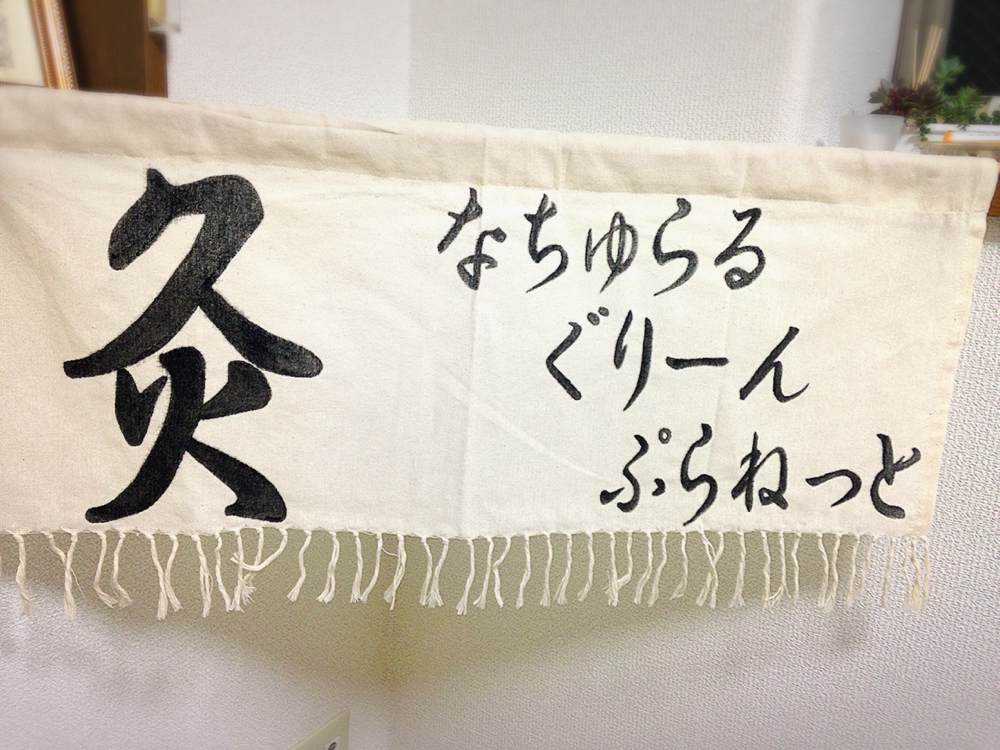 灸
なちゅらる
ぐりーん
ぷらねっと